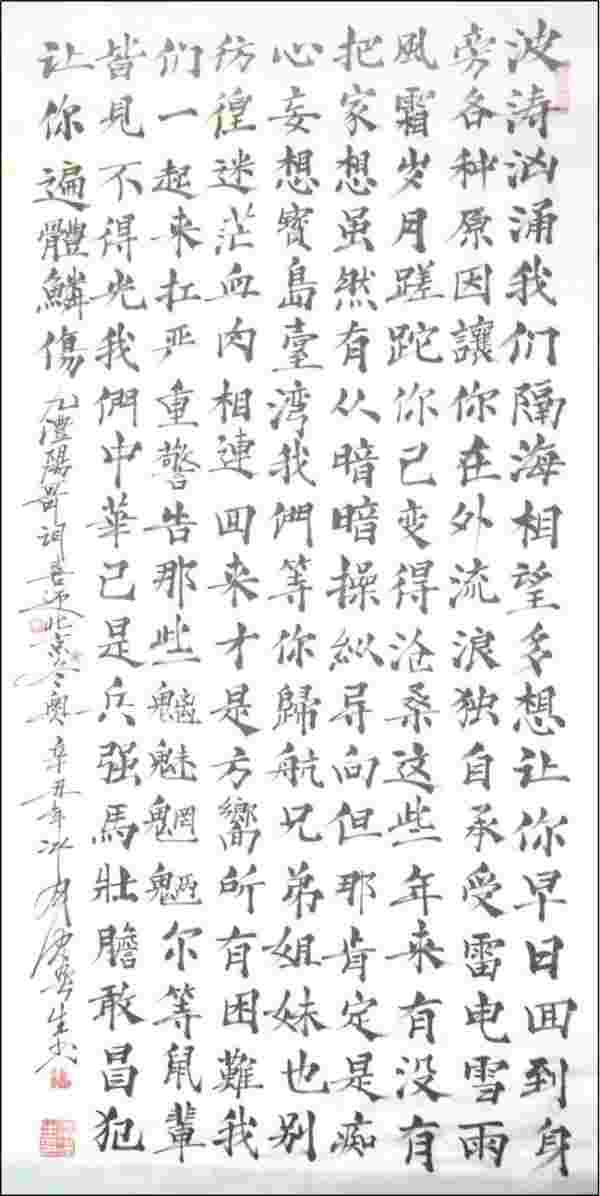 波涛汹涌我们隔海相望多想让你早日回到身
旁各种原因讓你在外流浪独自承受雷电雪雨
风霜岁月蹉跎你已变得沧桑这些年来有没有
把家想虽然有人暗暗操纵导向但那肯定是痴
心妄想寳島臺湾我们等你歸航兄弟姐妹也别
彷徨迷茫血肉相連回来才是方嚮所有困難我
们一起来扛严重警告那些魑魅魍魉尔等鼠輩
皆見不得光我們中華已是兵强馬壯膽敢冒犯
让你遍體鱗傷
九澧陽哥词喜迎北京冬奥 辛丑年